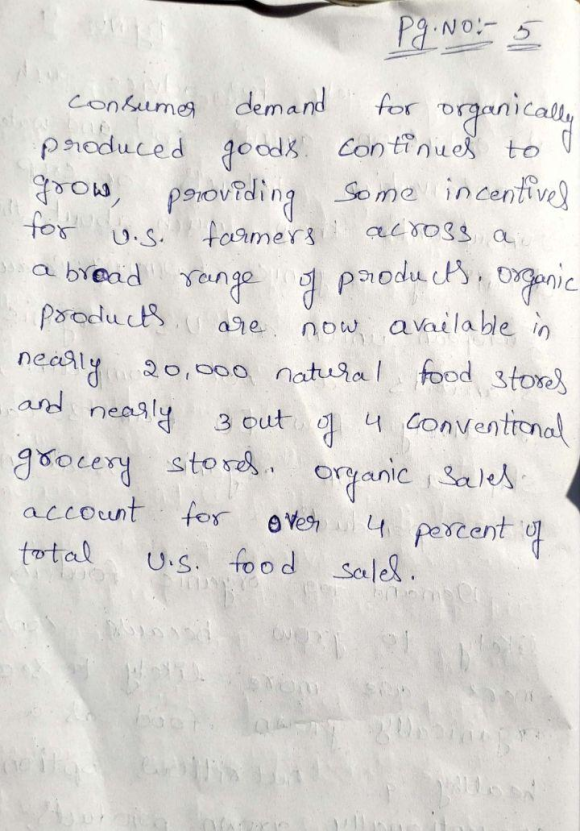 Pg.No:- 5
Consumer demand for organically
produced goods continues to
grow, providing some incentives
for U.S. farmers across a
a broad range of products. Organic
products are now available in
nearly 20,000 natural food stores
and nearly 3 out of 4 conventional
grocery stores. organic sales
account for over 4 percent of
total U.S. food sales.